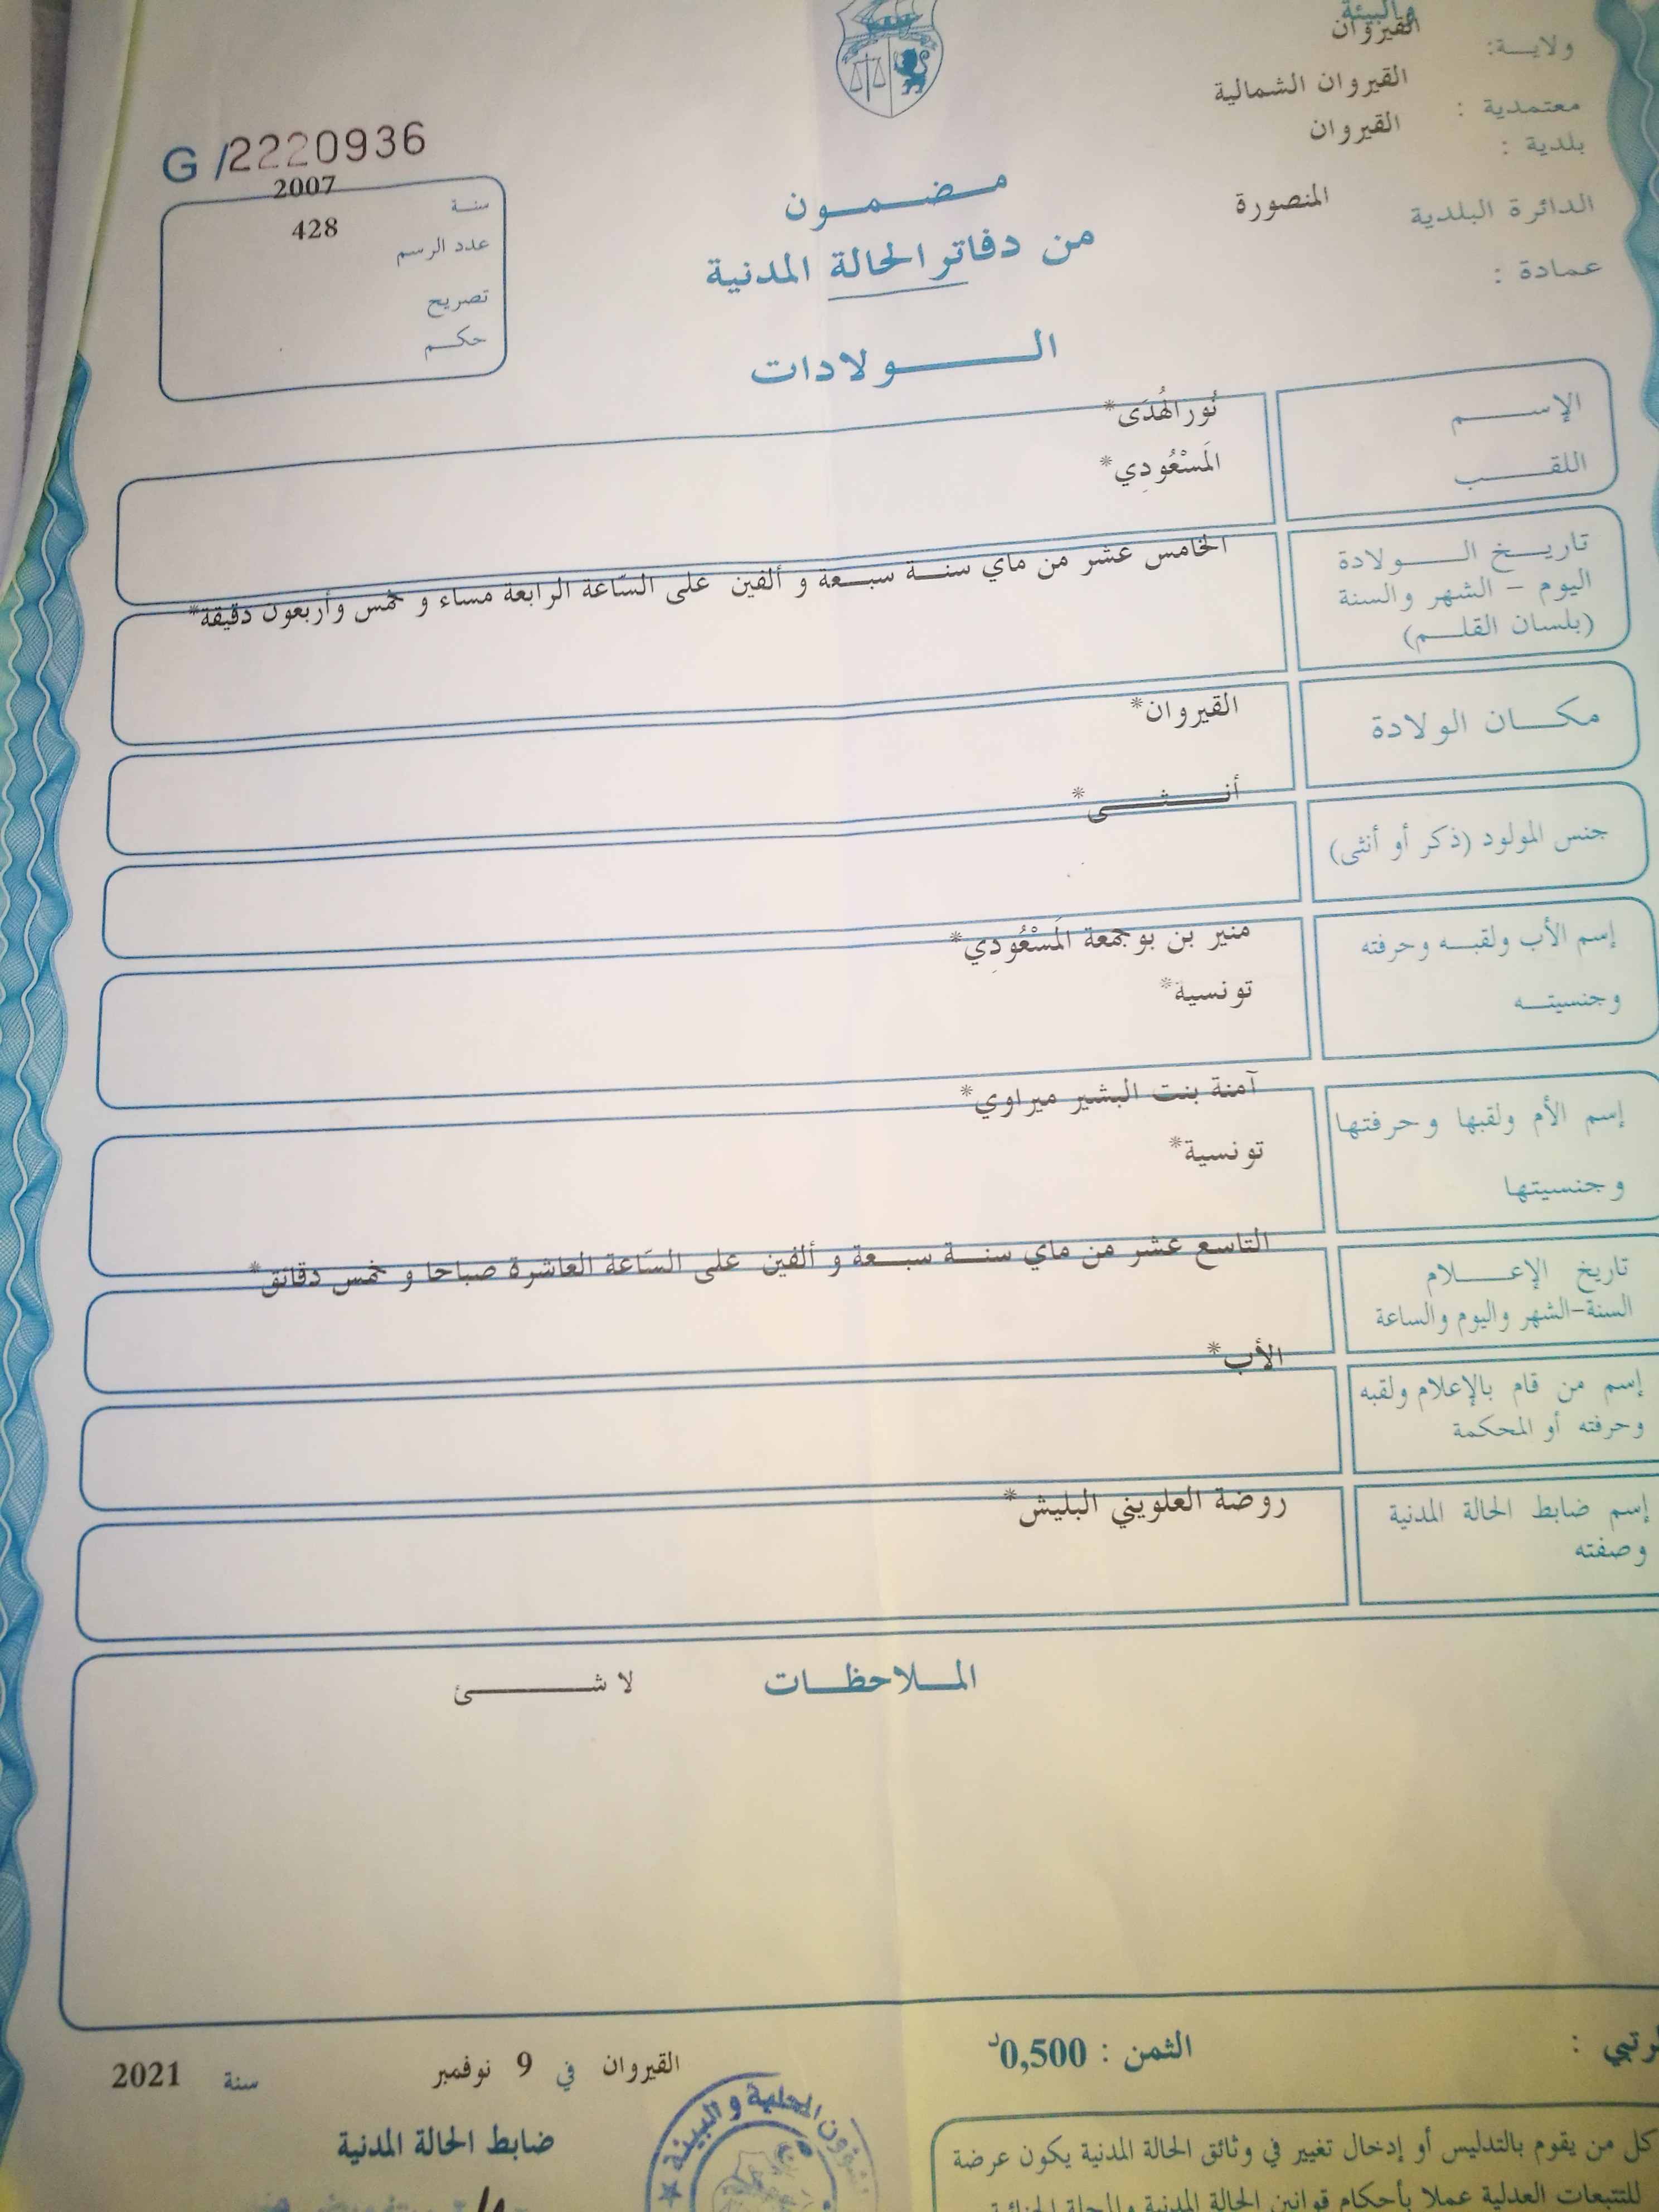 والبيئة
ولاية: القيروان
معتمدية : القيروان الشمالية
بلدية : القيروان
الدائرة البلدية المنصورة
عمادة :
G /2220936
سنة 2007
عدد الرسم 428
تصريح
حكم
مضمون
من دفاتر الحالة المدنية
الولادات
الإسم نُور الهُدَى*
اللقب المَسْعُودِي*
تاريخ الولادة
اليوم - الشهر والسنة
(بلسان القلم)
الخامس عشر من ماي سنة سبعة و ألفين على السّاعة الرابعة مساء و خمس وأربعون دقيقة*
مكان الولادة القيروان*
جنس المولود (ذكر أو أنثى) أنثى*
إسم الأب ولقبه وحرفته منير بن بوجمعة المَسْعُودِي*
وجنسيته تونسية*
إسم الأم ولقبها وحرفتها آمنة بنت البشير ميراوي*
وجنسيتها تونسية*
تاريخ الإعلام
السنة-الشهر واليوم والساعة
التاسع عشر من ماي سنة سبعة و ألفين على السّاعة العاشرة صباحا و خمس دقائق*
إسم من قام بالإعلام ولقبه
وحرفته أو المحكمة
الأب*
إسم ضابط الحالة المدنية
وصفته
روضة العلويني البليش*
الملاحظات لا شئ
الثمن : 0,500د
القيروان في 9 نوفمبر سنة 2021
ضابط الحالة المدنية
المحلية و البيئة
كل من يقوم بالتدليس أو إدخال تغيير في وثائق الحالة المدنية يكون عرضة
للتتبعات العدلية عملا بأحكام قوانين الحالة المدنية والمجلة الجنائية